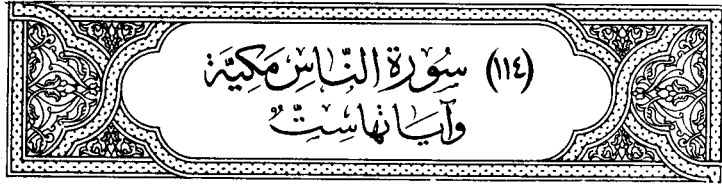 (١١٤) سُورَةُ النَّاسِ مَكِيَّةٌ
وَآيَاتُهَا سِتٌّ